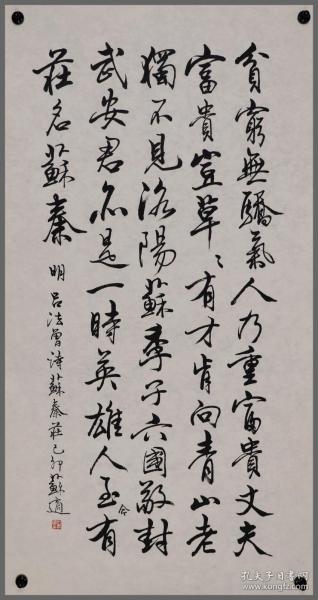 貧窮無驕氣人乃重富貴丈夫
富貴豈草〻有才肯向青山老
獨不見洛陽蘇季子六國敬封
武安君亦是一時英雄人至今有
莊名蘇秦
明呂法曾詩蘇秦莊己卯蘇適
孔夫子旧书网